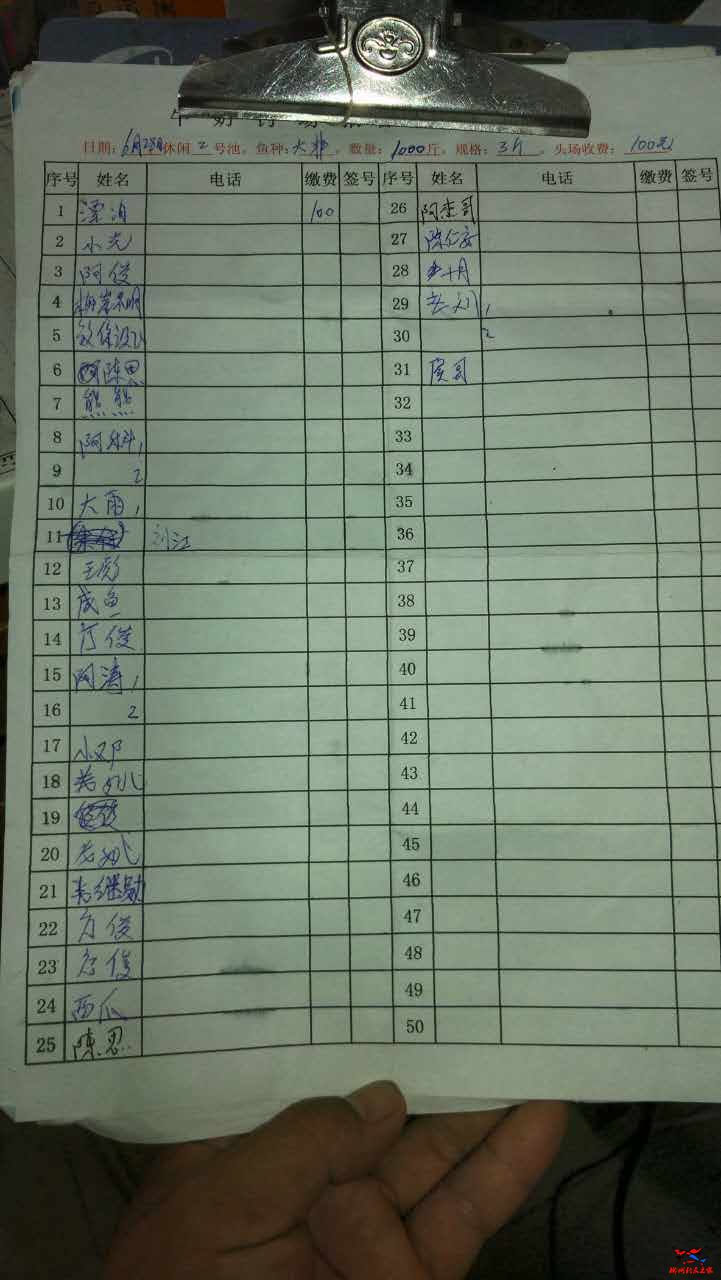 日期：6月28日休闲2号池。鱼种：大 ，数量：1000斤。规格：3斤。头场收费：100元
序号 姓名 电话 缴费 签号 序号 姓名 电话 缴费 签号
1 漂泊 100 26 阿来哥
2 小光 27 陈仁安
3 阿俊 28 十月
4 29 老刘 1
5 30 2
6 陈思 31 房哥
7 熊熊 32
8 阿科 1 33
9 2 34
10 大雨 1 35
11 刘江 36
12 王彪 37
13 咸鱼 38
14 方俊 39
15 阿涛 1 40
16 2 41
17 小邓 42
18 老姚 43
19 44
20 老姚 45
21 韦继勋 46
22 方俊 47
23 方俊 48
24 西瓜 49
25 陈思 50